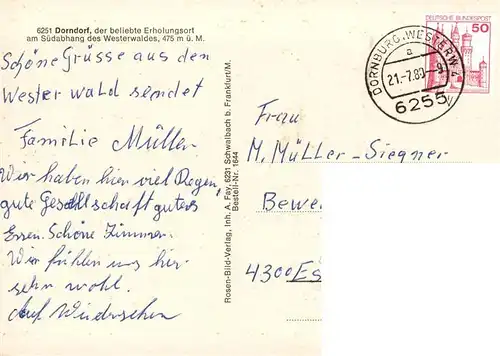 6251 Dorndorf, der beliebte Erholungsort
am Südabhang des Westerwaldes, 475 m ü. M.
Schöne Grüsse aus den
Wester wald sendet
Familie Müller
Wir haben hier viel Regen,
gute Gesellschaft gutes
Essen. Schöne Zimmer.
Wir fühlen uns hier
sehr wohl.
Auf Wiedersehen
Rosen-Bild-Verlag, Inh. A. Fay, 6231 Schwalbach b. Frankfurt/M.
Bestell-Nr. 1644
DORNBURG, WESTERW.
a
21.-7.80-9
6255
DEUTSCHE BUNDESPOST
50
Frau
M. Müller-Siegner
Bewe
4300 Es